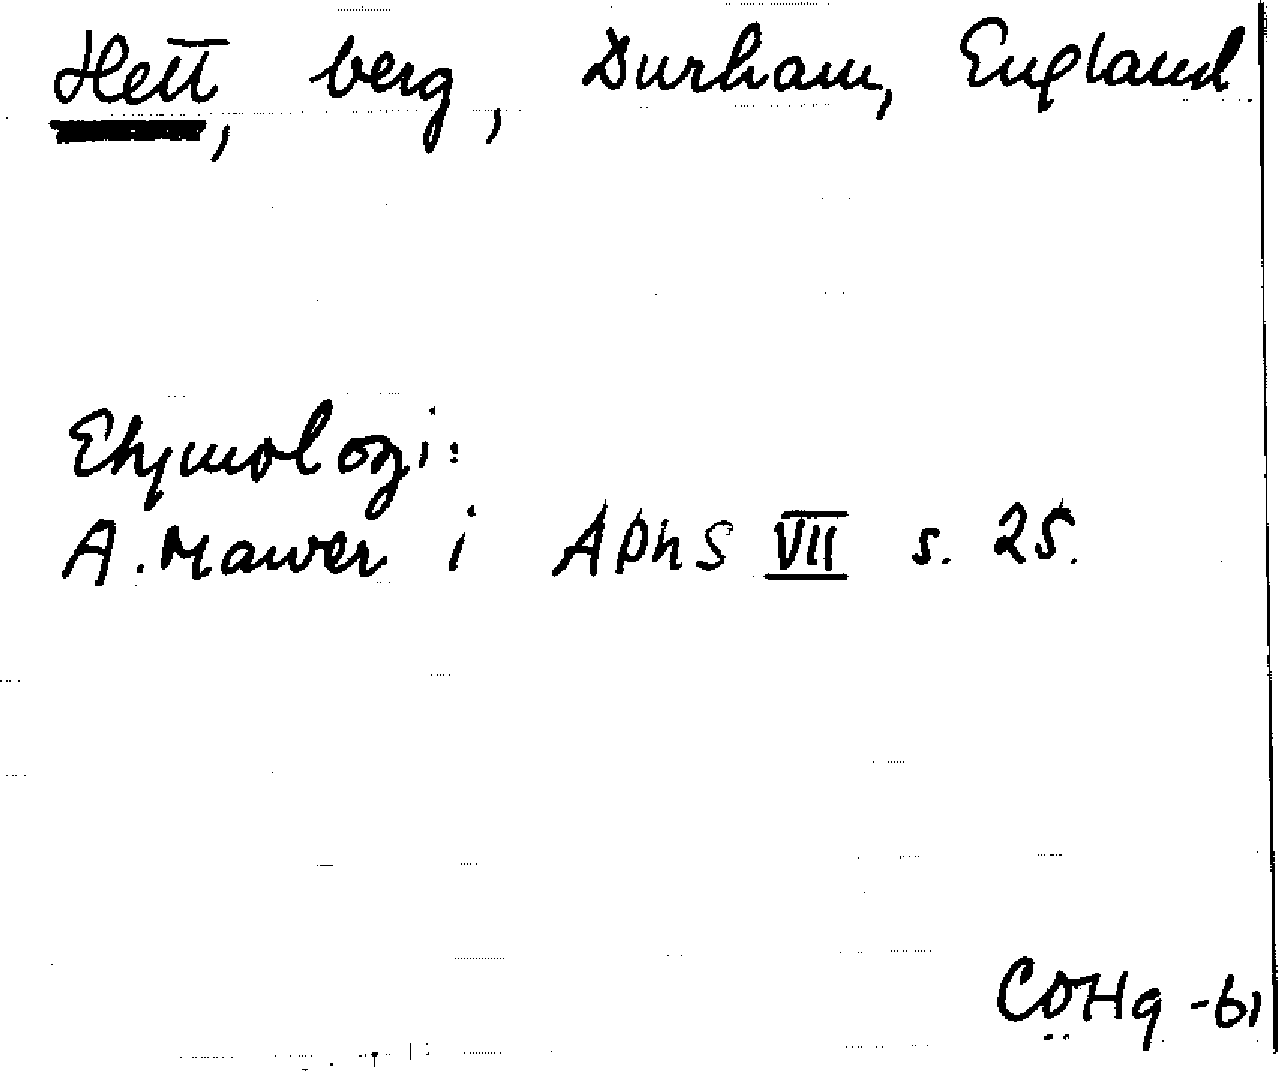 Hett, berg, Durham, England
Etymologi:
A. Mawer i APhS VII s. 25.
COHg -61